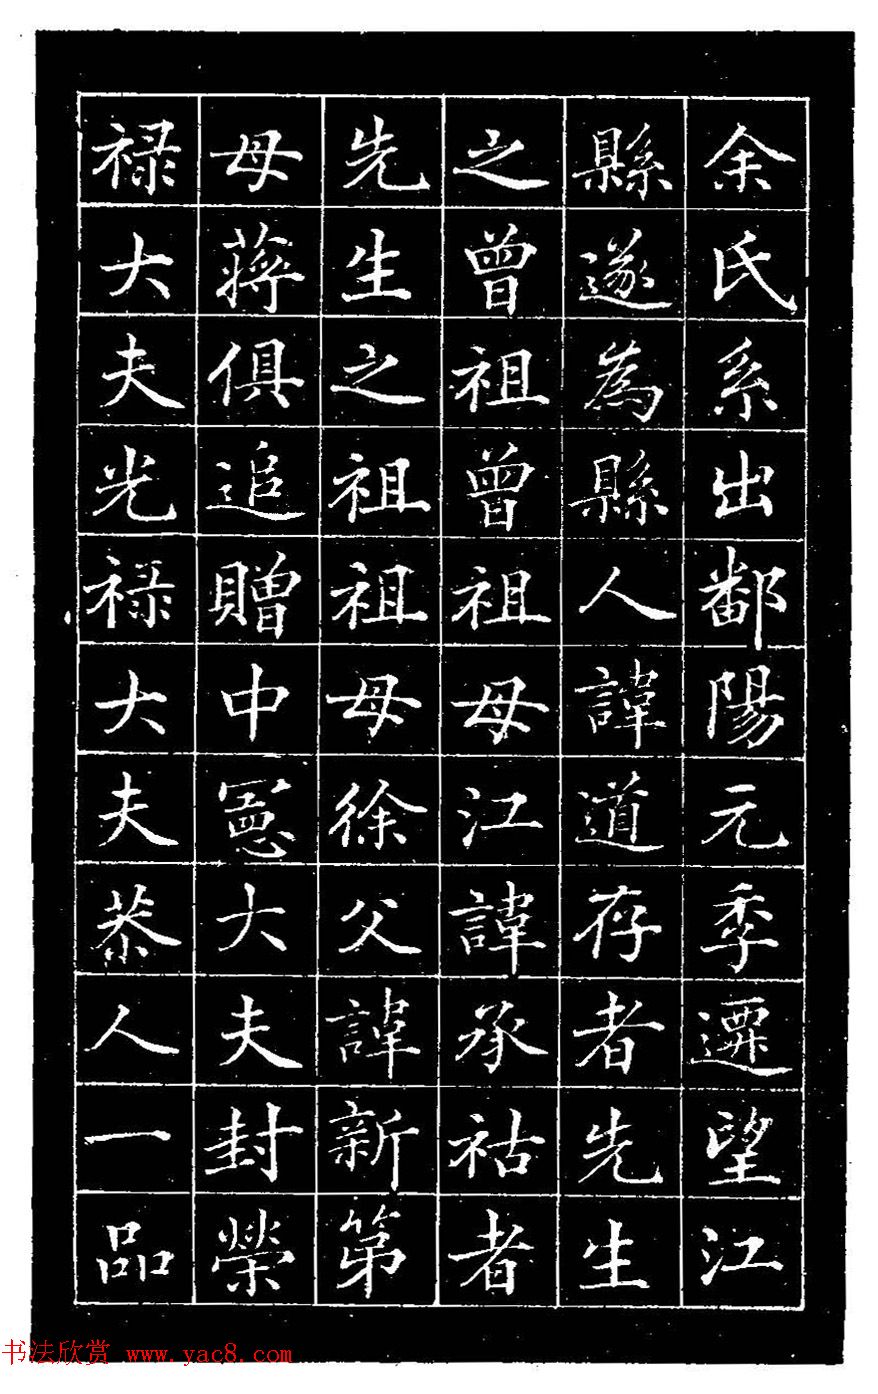 余氏系出鄱陽元季遷望江
縣遂為縣人諱道存者先生
之曾祖曾祖母江諱承祜者
先生之祖祖母徐父諱新第
母蔣俱追贈中憲大夫封榮
禄大夫光禄大夫恭人一品
书法欣赏 www.yac8.com